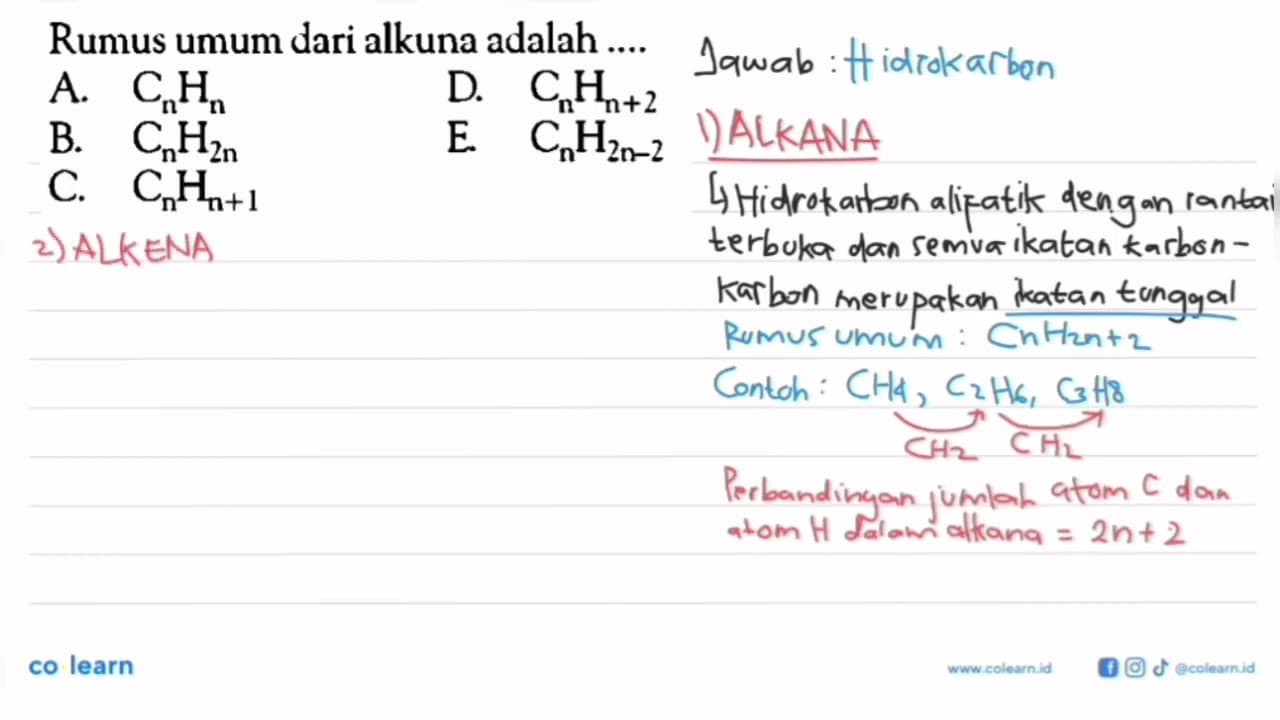 Rumus umum dari alkuna adalah ....
A. CₙHₙ
B. CₙH₂ₙ
C. CₙHₙ₊₁
D. CₙHₙ₊₂
E. CₙH₂ₙ₋₂
2) ALKENA
Jawab : Hidrokarbon
1) ALKANA
↳ Hidrokarbon alifatik dengan rantai
terbuka dan semua ikatan karbon-
karbon merupakan ikatan tunggal
Rumus umum : CnH2n+2
Contoh : CH4, C2H6, C3H8
CH2 CH2
Perbandingan jumlah atom C dan
atom H dalam alkana = 2n+2
co learn
www.colearn.id @colearn.id